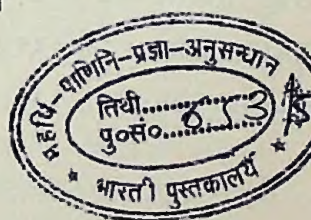 महर्षि-पाणिनि-प्रज्ञा-अनुसन्धान
तिथी..................
पु०सं०.............
* भारती पुस्तकालय *